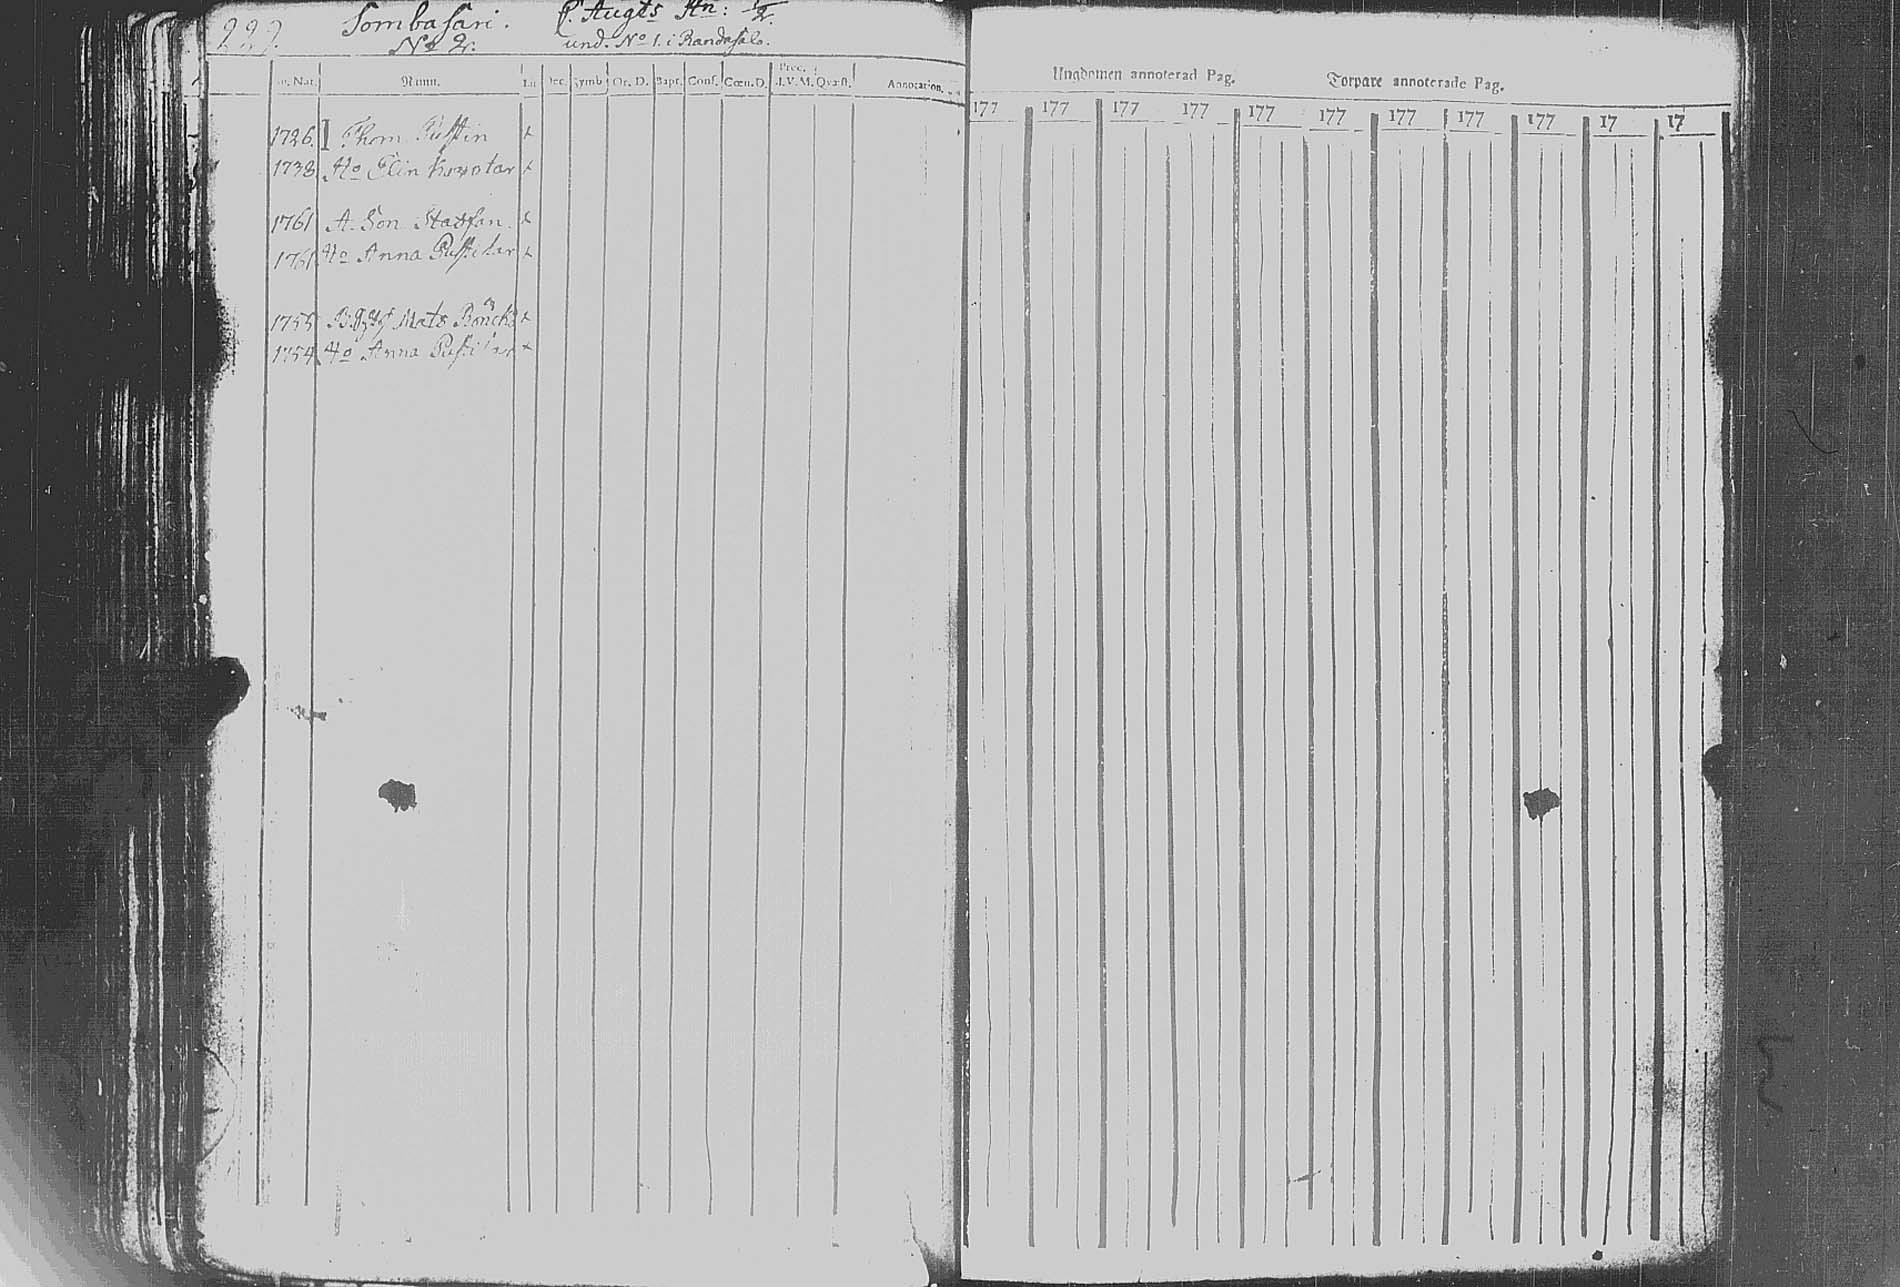 222. Sombasari. P. Augts Hn: 1/2.
No 2. und. No 1. i Randasalo.
Nat. Numn. Lit. Dec. Symb. Or. D. Bapt. Conf. Cœn. D. Prec. J. V. M. Quæst. Annotation.
1726. Thom. Pustin x
1738 Ho Elin x
1761 A. Son Staffan. x
1761 Ho Anna Pustitar x
1755 Mats x
1754 Ho Anna Pustitar x
Ungdomen annoterad Pag. Torpare annoterade Pag.
177 177 177 177 177 177 177 177 177 17 17